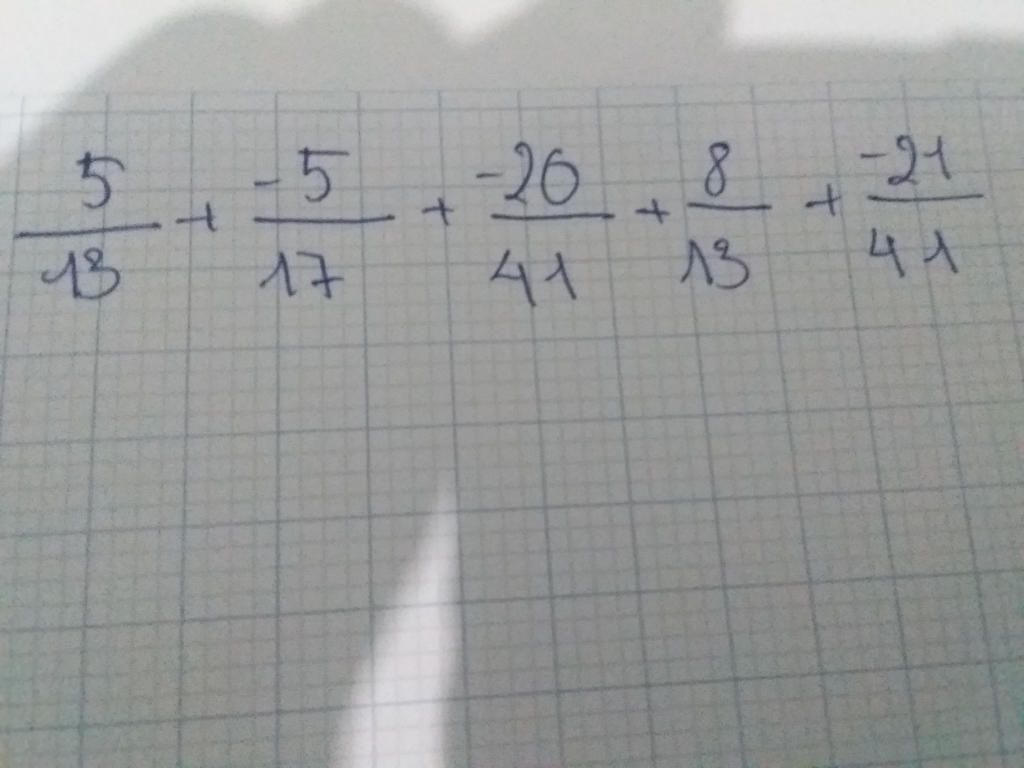 5/13 + -5/17 + -20/41 + 8/13 + -21/41